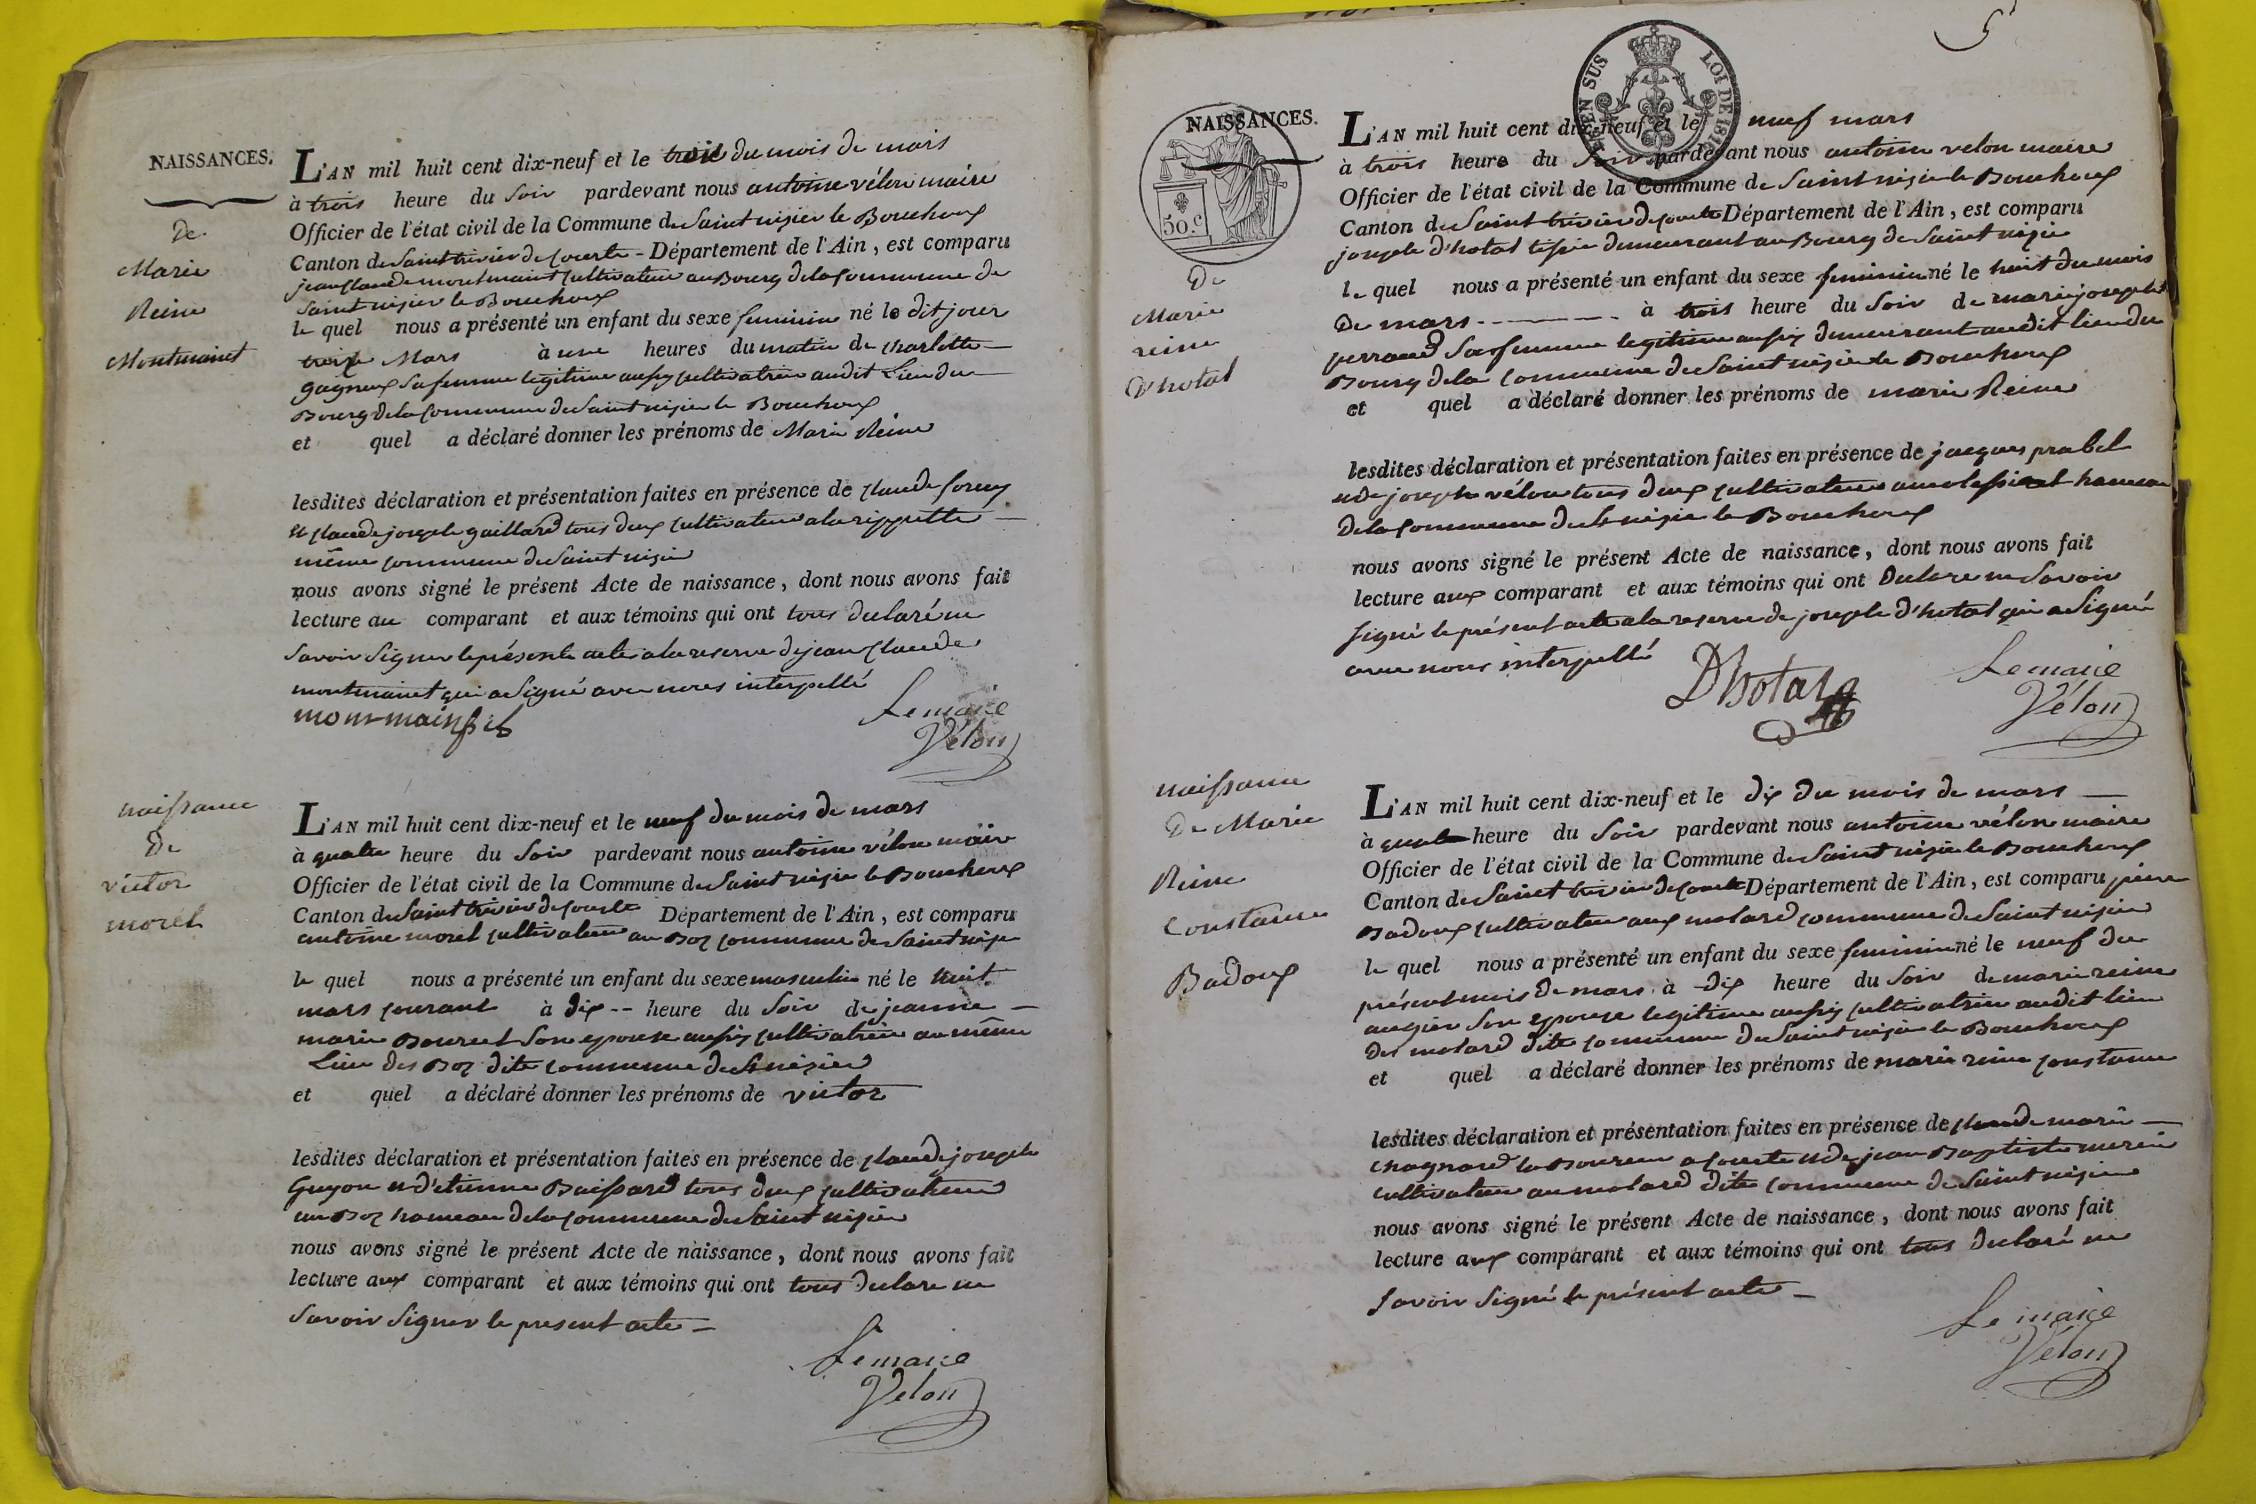 NAISSANCES.
de
Marie
Reine
Montmainet
L'AN mil huit cent dix-neuf et le trois du mois de mars
à trois heure du Soir pardevant nous antoine vélon maire
Officier de l'état civil de la Commune de Saint nizier le Bouchoux
Canton de Saint trivier de Courte - Département de l'Ain, est comparu
jean Claude montmainet Cultivateur au Bourg de la Commune de
Saint nizier le Bouchoux
le quel nous a présenté un enfant du sexe feminin né le dit jour
trois Mars à une heures du matin de Charlotte
gagneux Sa femme legitime aussy Cultivatrice audit Lieu du
Bourg de la Commune de Saint nizier le Bouchoux
et quel a déclaré donner les prénoms de Marie Reine
lesdites déclaration et présentation faites en présence de Claude
et Claude joseph gaillard tous deux Cultivateur a la rippette
même Commune de Saint nizier
nous avons signé le présent Acte de naissance, dont nous avons fait
lecture au comparant et aux témoins qui ont tous declaré ne
Savoir Signer le présente acte a la reserve de jean Claude
montmainet qui a Signé avec nous interpellé
Le maire
Vélon
naissance
de
victor
morel
L'AN mil huit cent dix-neuf et le neuf du mois de mars
à quatre heure du Soir pardevant nous antoine vélon maire
Officier de l'état civil de la Commune de Saint nizier le Bouchoux
Canton de Saint trivier de Courte Département de l'Ain, est comparu
antoine morel Cultivateur au Boz Commune de Saint nizier
le quel nous a présenté un enfant du sexe masculin né le huit
mars Courant à dix -- heure du Soir de jeanne
marie Bourcet Son epouse aussy Cultivatrice au même
Lieu des Boz dite Commune de St nizier
et quel a déclaré donner les prénoms de victor
lesdites déclaration et présentation faites en présence de Claude joseph
Guyon et d'etienne Baissard tous deux Cultivateur
au Boz hameau de la Commune de Saint nizier
nous avons signé le présent Acte de naissance, dont nous avons fait
lecture aux comparant et aux témoins qui ont tous declare ne
Savoir Signer le present acte
Le maire
Vélon
TIMBRE EN SUS LOI DE 1816
NAISSANCES.
50.c
de
Marie
reine
D'hotal
L'AN mil huit cent dix-neuf et le neuf mars
à trois heure du Soir pardevant nous antoine velon maire
Officier de l'état civil de la Commune de Saint nizier le Bouchoux
Canton de Saint trivier de Courte Département de l'Ain, est comparu
joseph d'hotal demeurant au Bourg de Saint nizier
le quel nous a présenté un enfant du sexe feminin né le huit du mois
de mars à trois heure du Soir de marie josephe
perraud Sa femme legitime aussy demeurant audit lieu du
Bourg de la Commune de Saint nizier le Bouchoux
et quel a déclaré donner les prénoms de marie Reine
lesdites déclaration et présentation faites en présence de jacques prabel
et de joseph vélon tous deux Cultivateur hameau
de la Commune de St nizier le Bouchoux
nous avons signé le présent Acte de naissance, dont nous avons fait
lecture aux comparant et aux témoins qui ont Declare ne Savoir
signé le présent acte a la reserve de joseph d'hotal qui a Signé
avec nous interpellé
Dhotal
Le maire
Vélon
naissance
de Marie
Reine
Constance
Badoux
L'AN mil huit cent dix-neuf et le dix du mois de mars
à quatre heure du Soir pardevant nous antoine vélon maire
Officier de l'état civil de la Commune de Saint nizier le Bouchoux
Canton de Saint trivier de Courte Département de l'Ain, est comparu pierre
Badoux Cultivateur aux molard Commune de Saint nizier
le quel nous a présenté un enfant du sexe feminin né le neuf du
présent mois de mars à dix heure du Soir de marie reine
augier Son epouse legitime aussy Cultivatrice audit lieu
des molard dite Commune de Saint nizier le Bouchoux
et quel a déclaré donner les prénoms de marie reine Constance
lesdites déclaration et présentation faites en présence de Claude marie
Chagnard laboureur a Courte et de jean Baptiste
cultivateur au molard dite Commune de Saint nizier
nous avons signé le présent Acte de naissance, dont nous avons fait
lecture aux comparant et aux témoins qui ont tous declaré ne
Savoir Signé le présent acte
Le maire
Vélon